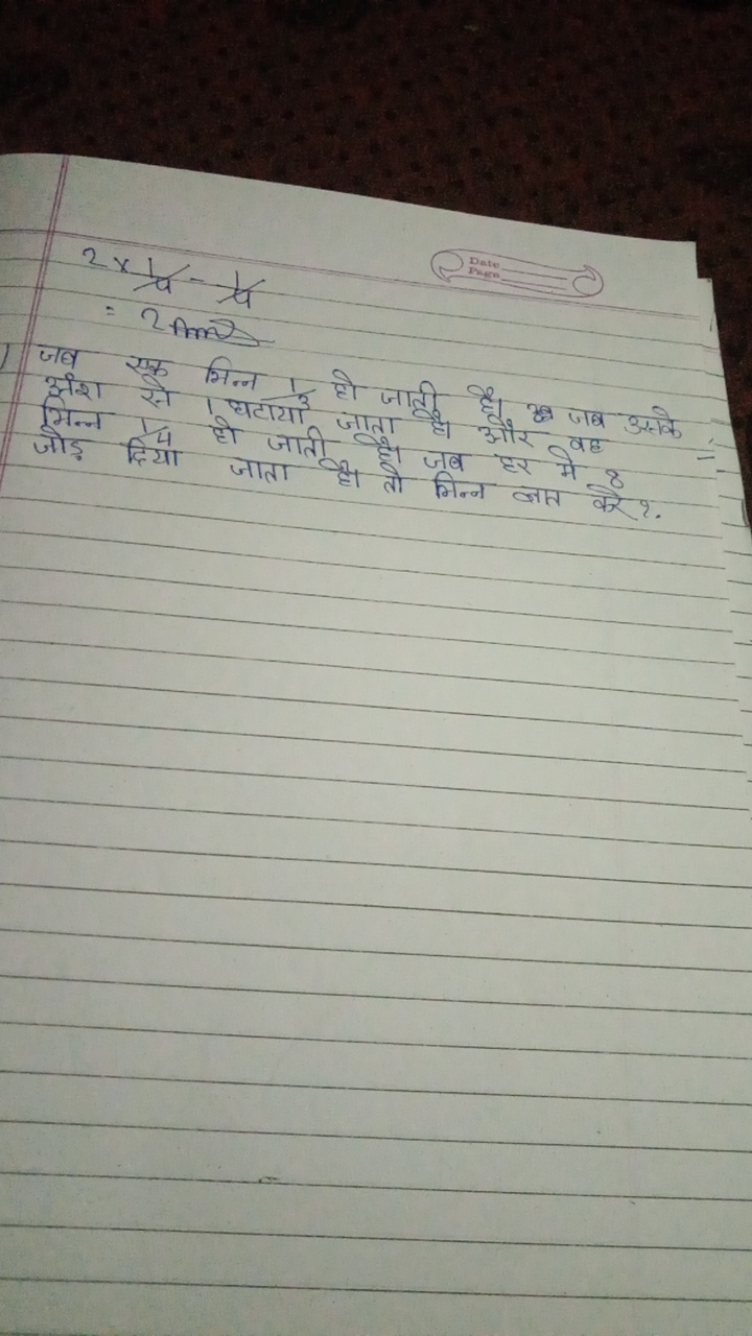 Date
Page
2 × 1/4 - 1/4
= 2
जब एक भिन्न 1/3 हो जाती है। जब उसके
अंश से 1 घटाया जाता है। और वह
भिन्न 1/4 हो जाती है। जब हर में 8
जोड़ दिया जाता है। तो भिन्न ज्ञात करें ?.